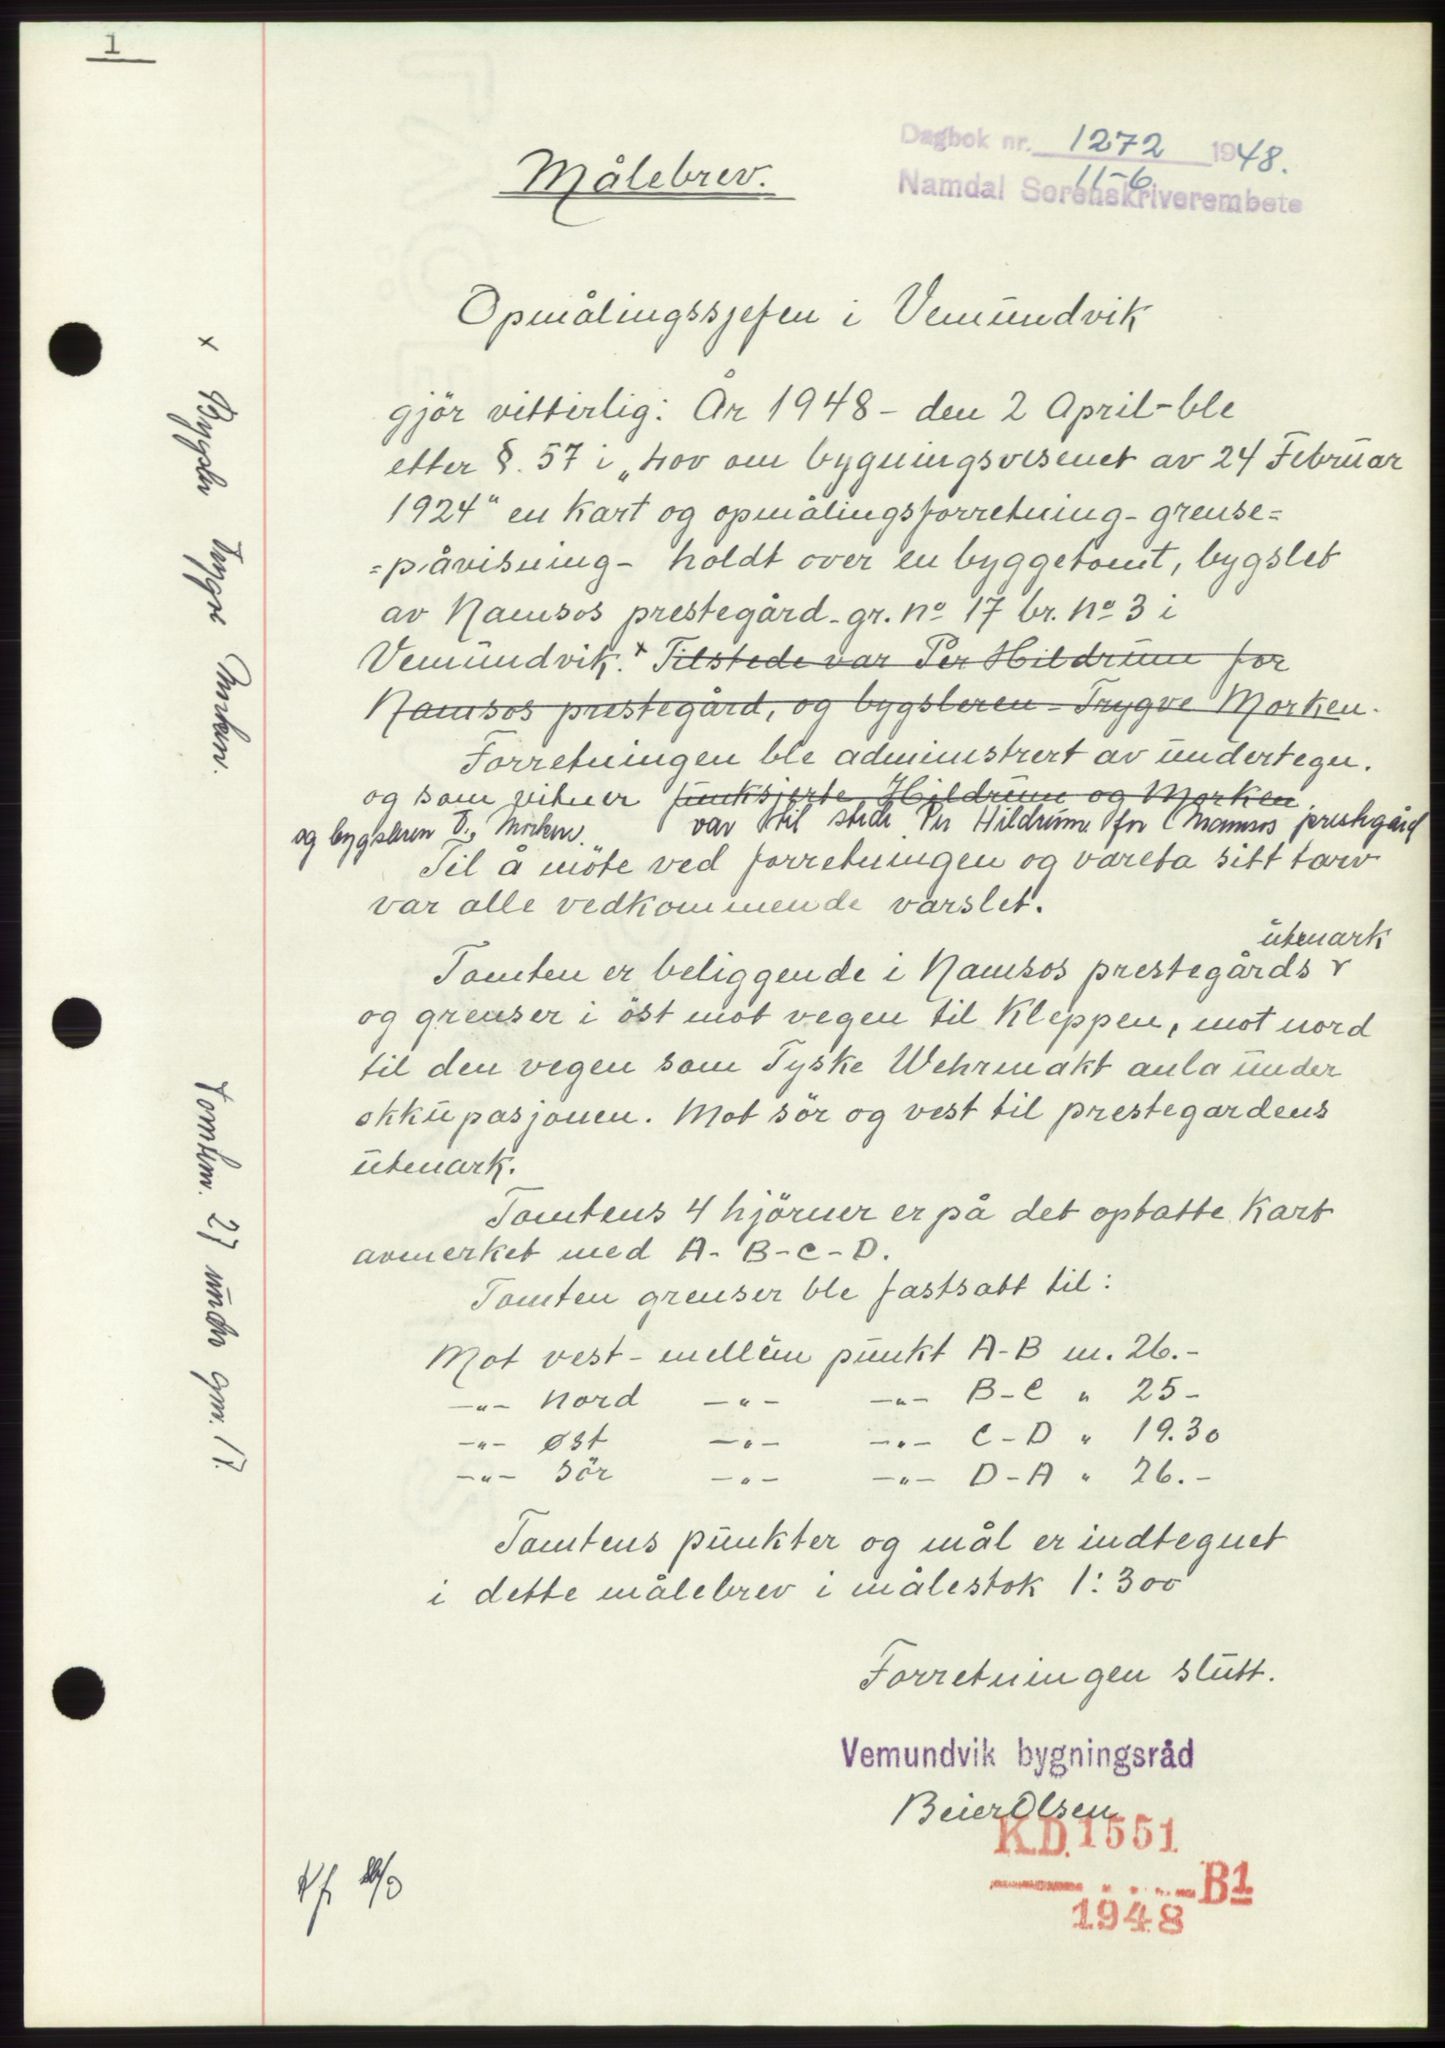 1
Dagbok nr. 1272 1948.
11-6
Namdal Sorenskriverembete
Målebrev.
Opmålingssjefen i Vemundvik
gjör vitterlig: År 1948 - den 2 April - ble
etter §. 57 i „Lov om bygningsvesenet av 24 Februar
1924" en kart og opmålingsforretning - grense=
=påvisning - holdt over en byggetomt, bygslet
av Namsos prestegård - gr. No 17 br. No 3 i
Vemundvik. x Tilstede var Per Hildrum for
Namsos prestegård, og bygsleren - Trygve Morken.
Forretningen ble administrert av undertegn.
og som vitner funksjerte Hildrum og Morken.
var til stede Per Hildrum for Namsos prestegård
og bygsleren T. Morken.
Til å möte ved forretningen og vareta sitt tarv
var alle vedkommende varslet.
utmark
Tomten er beliggende i Namsos prestegårds v
og grenser i öst mot vegen til Kleppen, mot nord
til den vegen som Tyske Wehrmakt anla under
okkupasjonen. Mot sör og vest til prestegardens
utmark.
Tomtens 4 hjörner er på det optatte kart
avmerket med A - B - C - D.
Tomten grenser ble fastsatt til:
Mot vest - mellem punkt A-B m. 26.-
-"- Nord -"- -"- B-C " 25-
-"- Øst -"- -"- C-D " 19.30
-"- Sör -"- -"- D-A " 26.-
Tomtens punkter og mål er indtegnet
i dette målebrev i målestok 1:300
Forretningen slutt.
Vemundvik bygningsråd
Beier Olsen
K.D. 1551
B1
1948
x Bygsler Trygve Morken.
Tomten 27 under gnr. 17.